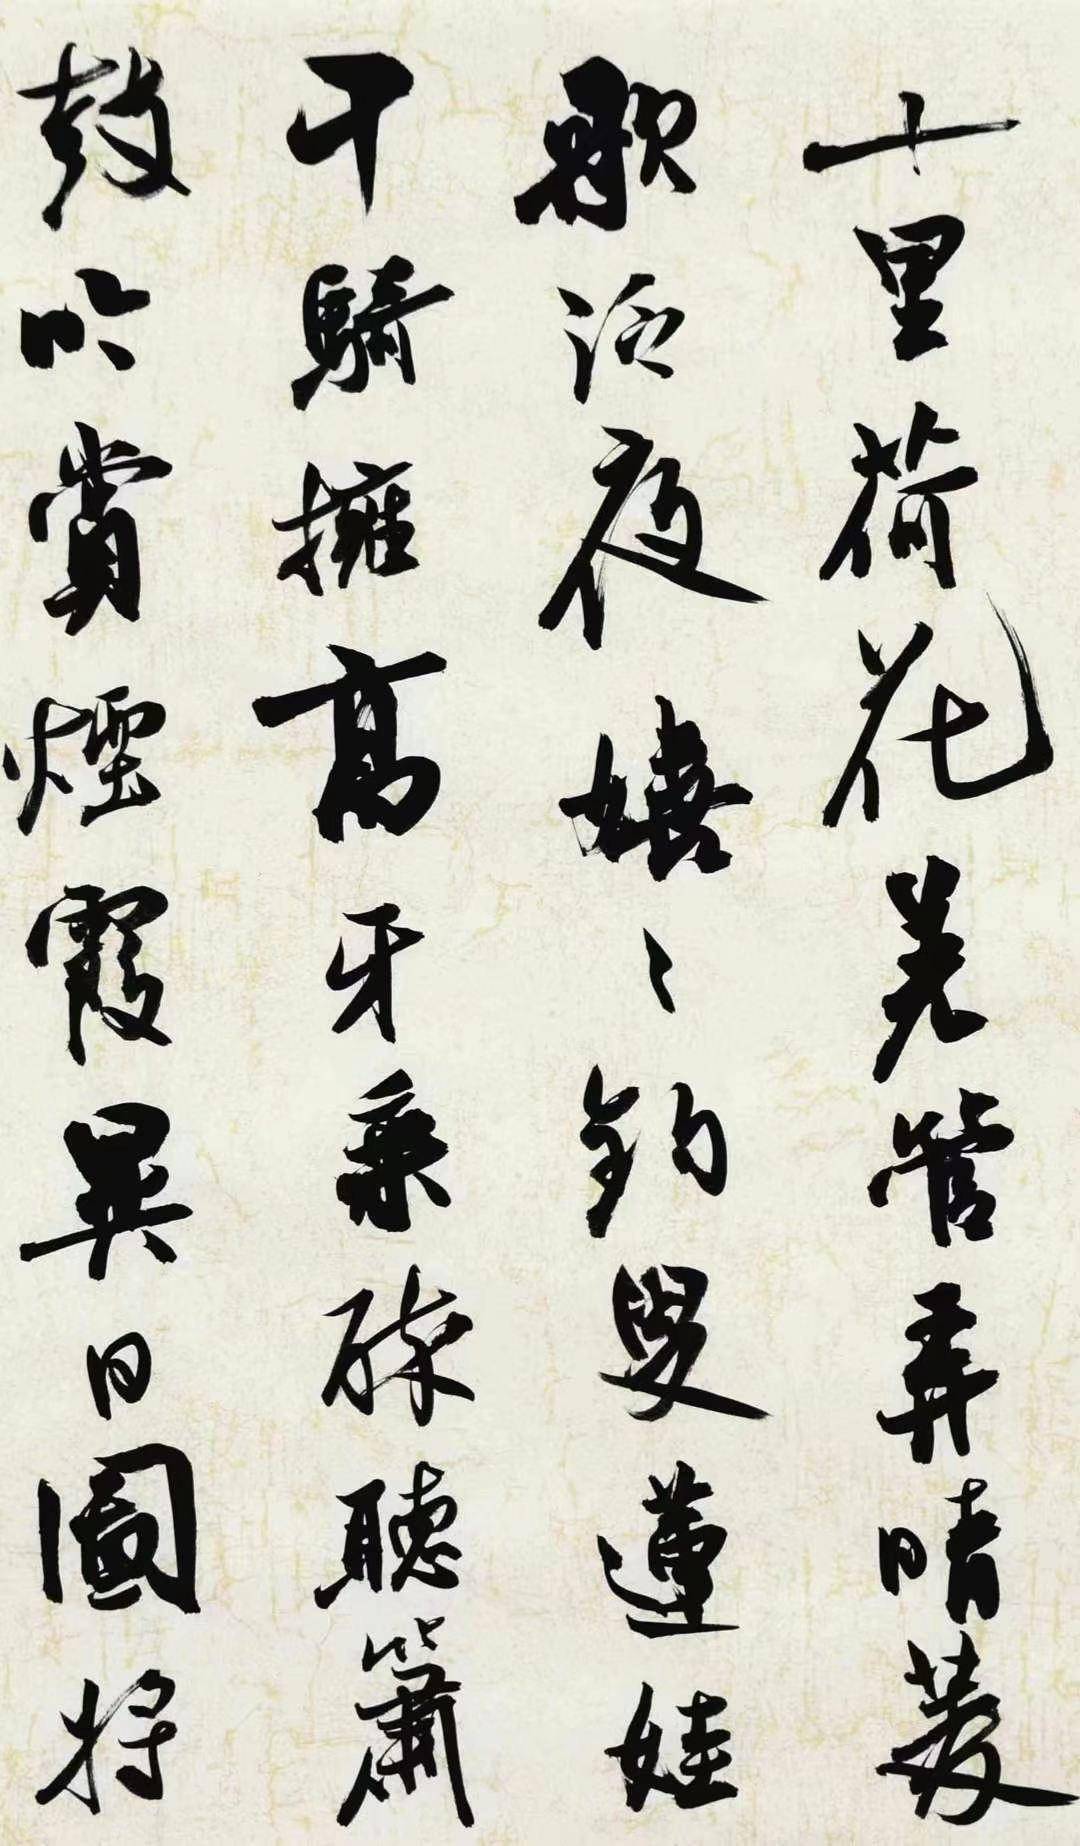 十里荷花羌管弄晴菱
歌泛夜嬉〻釣叟蓮娃
千騎擁高牙乘醉聽簫
鼓吟賞煙霞異日圖將